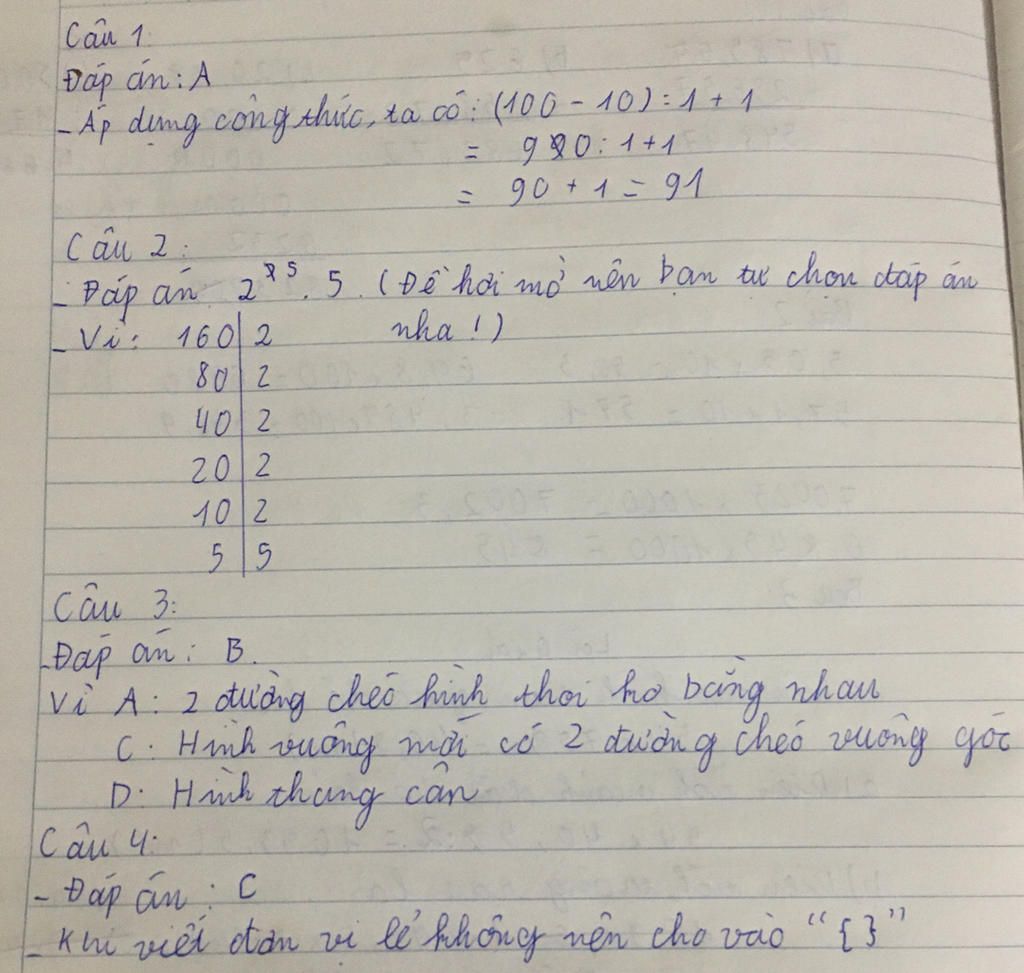 Câu 1:
Đáp án: A
- Áp dụng công thức, ta có: (100 - 10) : 1 + 1
= 90 : 1 + 1
= 90 + 1 = 91
Câu 2:
- Đáp án 2^5 . 5. (Đề hơi mờ nên bạn tự chọn đáp án
nha!)
- Vì: 160 | 2
80 | 2
40 | 2
20 | 2
10 | 2
5 | 5
Câu 3:
- Đáp án: B.
Vì A: 2 đường chéo hình thoi ko bằng nhau
C: Hình vuông mới có 2 đường chéo vuông góc
D: Hình thang cân
Câu 4:
- Đáp án: C
- Khi viết đơn vi lẻ không nên cho vào "{ }"